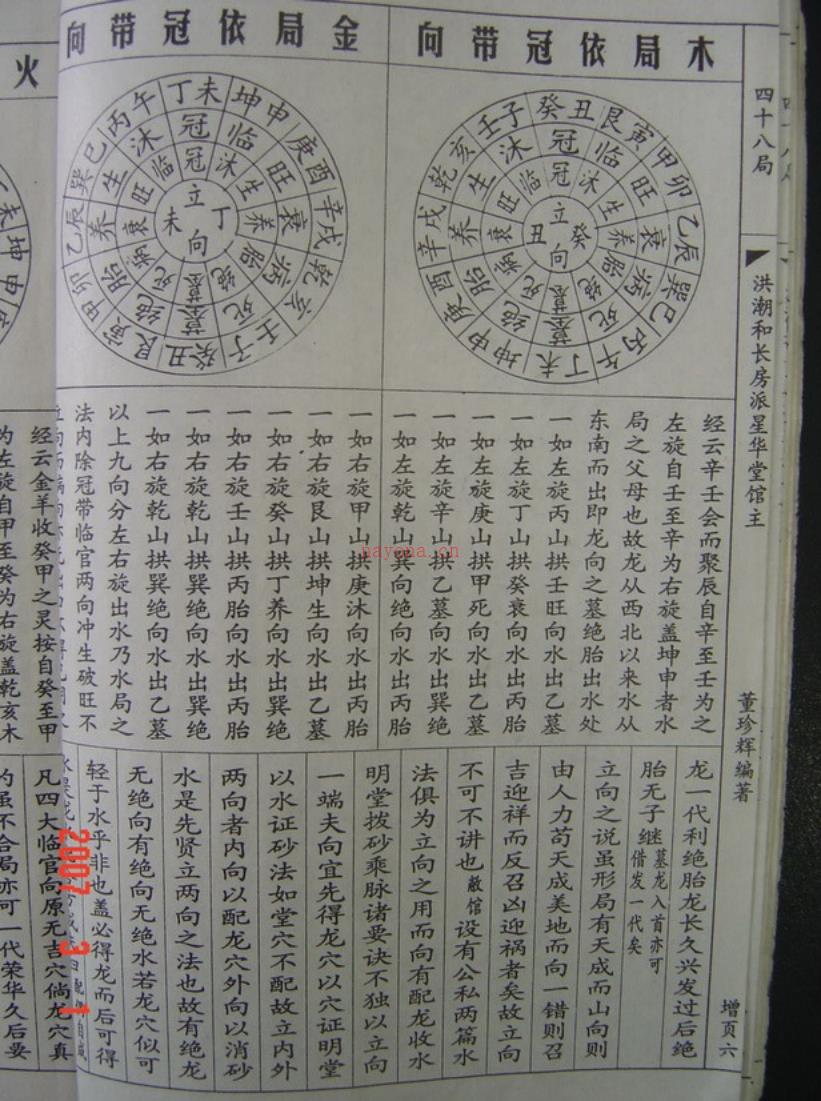 四十八局
洪潮和长房派星华堂馆主
董珍辉编著
增页六
木局依冠带向
立癸向丑
冠沐生养衰胎病绝死墓死绝病胎衰养旺生临沐
冠临旺衰病死墓绝胎养生沐
癸丑艮寅甲卯乙辰巽巳丙午丁未坤申庚酉辛戌乾亥壬子
金局依冠带向
立丁向未
冠临旺衰病死墓绝胎养生沐
丁未坤申庚酉辛戌乾亥壬子癸丑艮寅甲卯乙辰巽巳丙午
经云辛壬会而聚辰自辛至壬为之
左旋自壬至辛为右旋盖坤申者水
局之父母也故龙从西北以来水从
东南而出即龙向之墓绝胎出水处
一如左旋丙山拱壬旺向水出乙墓
一如左旋丁山拱癸衰向水出丙胎
一如左旋庚山拱甲死向水出乙墓
一如左旋辛山拱乙墓向水出巽绝
一如左旋乾山巽向绝向水出丙胎
一如右旋甲山拱庚沐向水出丙胎
一如右旋艮山拱坤生向水出乙墓
一如右旋癸山拱丁养向水出巽绝
一如右旋壬山拱丙胎向水出丙胎
一如右旋乾山拱巽绝向水出巽绝
一如右旋乾山拱巽绝向水出乙墓
以上九向分左右旋出水乃水局之
法内除冠带临官两向冲生破旺不
龙一代利绝胎龙长久兴发过后绝
胎无子继墓龙入首亦可借发一代矣
立向之说虽形局有天成而山向则
由人力苟天成美地而向一错则召
吉迎祥而反召凶迎祸者矣故立向
不可不讲也敝馆设有公私两篇水
法俱为立向之用而向有配龙收水
明堂拨砂乘脉诸要诀不独以立向
一端夫向宜先得龙穴以穴证明堂
以水证砂法如堂穴不配故立内外
两向者内向以配龙穴外向以消砂
水是先贤立两向之法也故有绝龙
无绝向有绝向无绝水若龙穴似可
轻于水乎非也盖必得龙而后可得
火
经云金羊收癸甲之灵按自癸至甲
为左旋自甲至癸为右旋盖乾亥木
凡四大临官向原无吉穴倘龙穴真
的虽不合局亦可一代荣华久后要
nayona.cn
2007 3 1